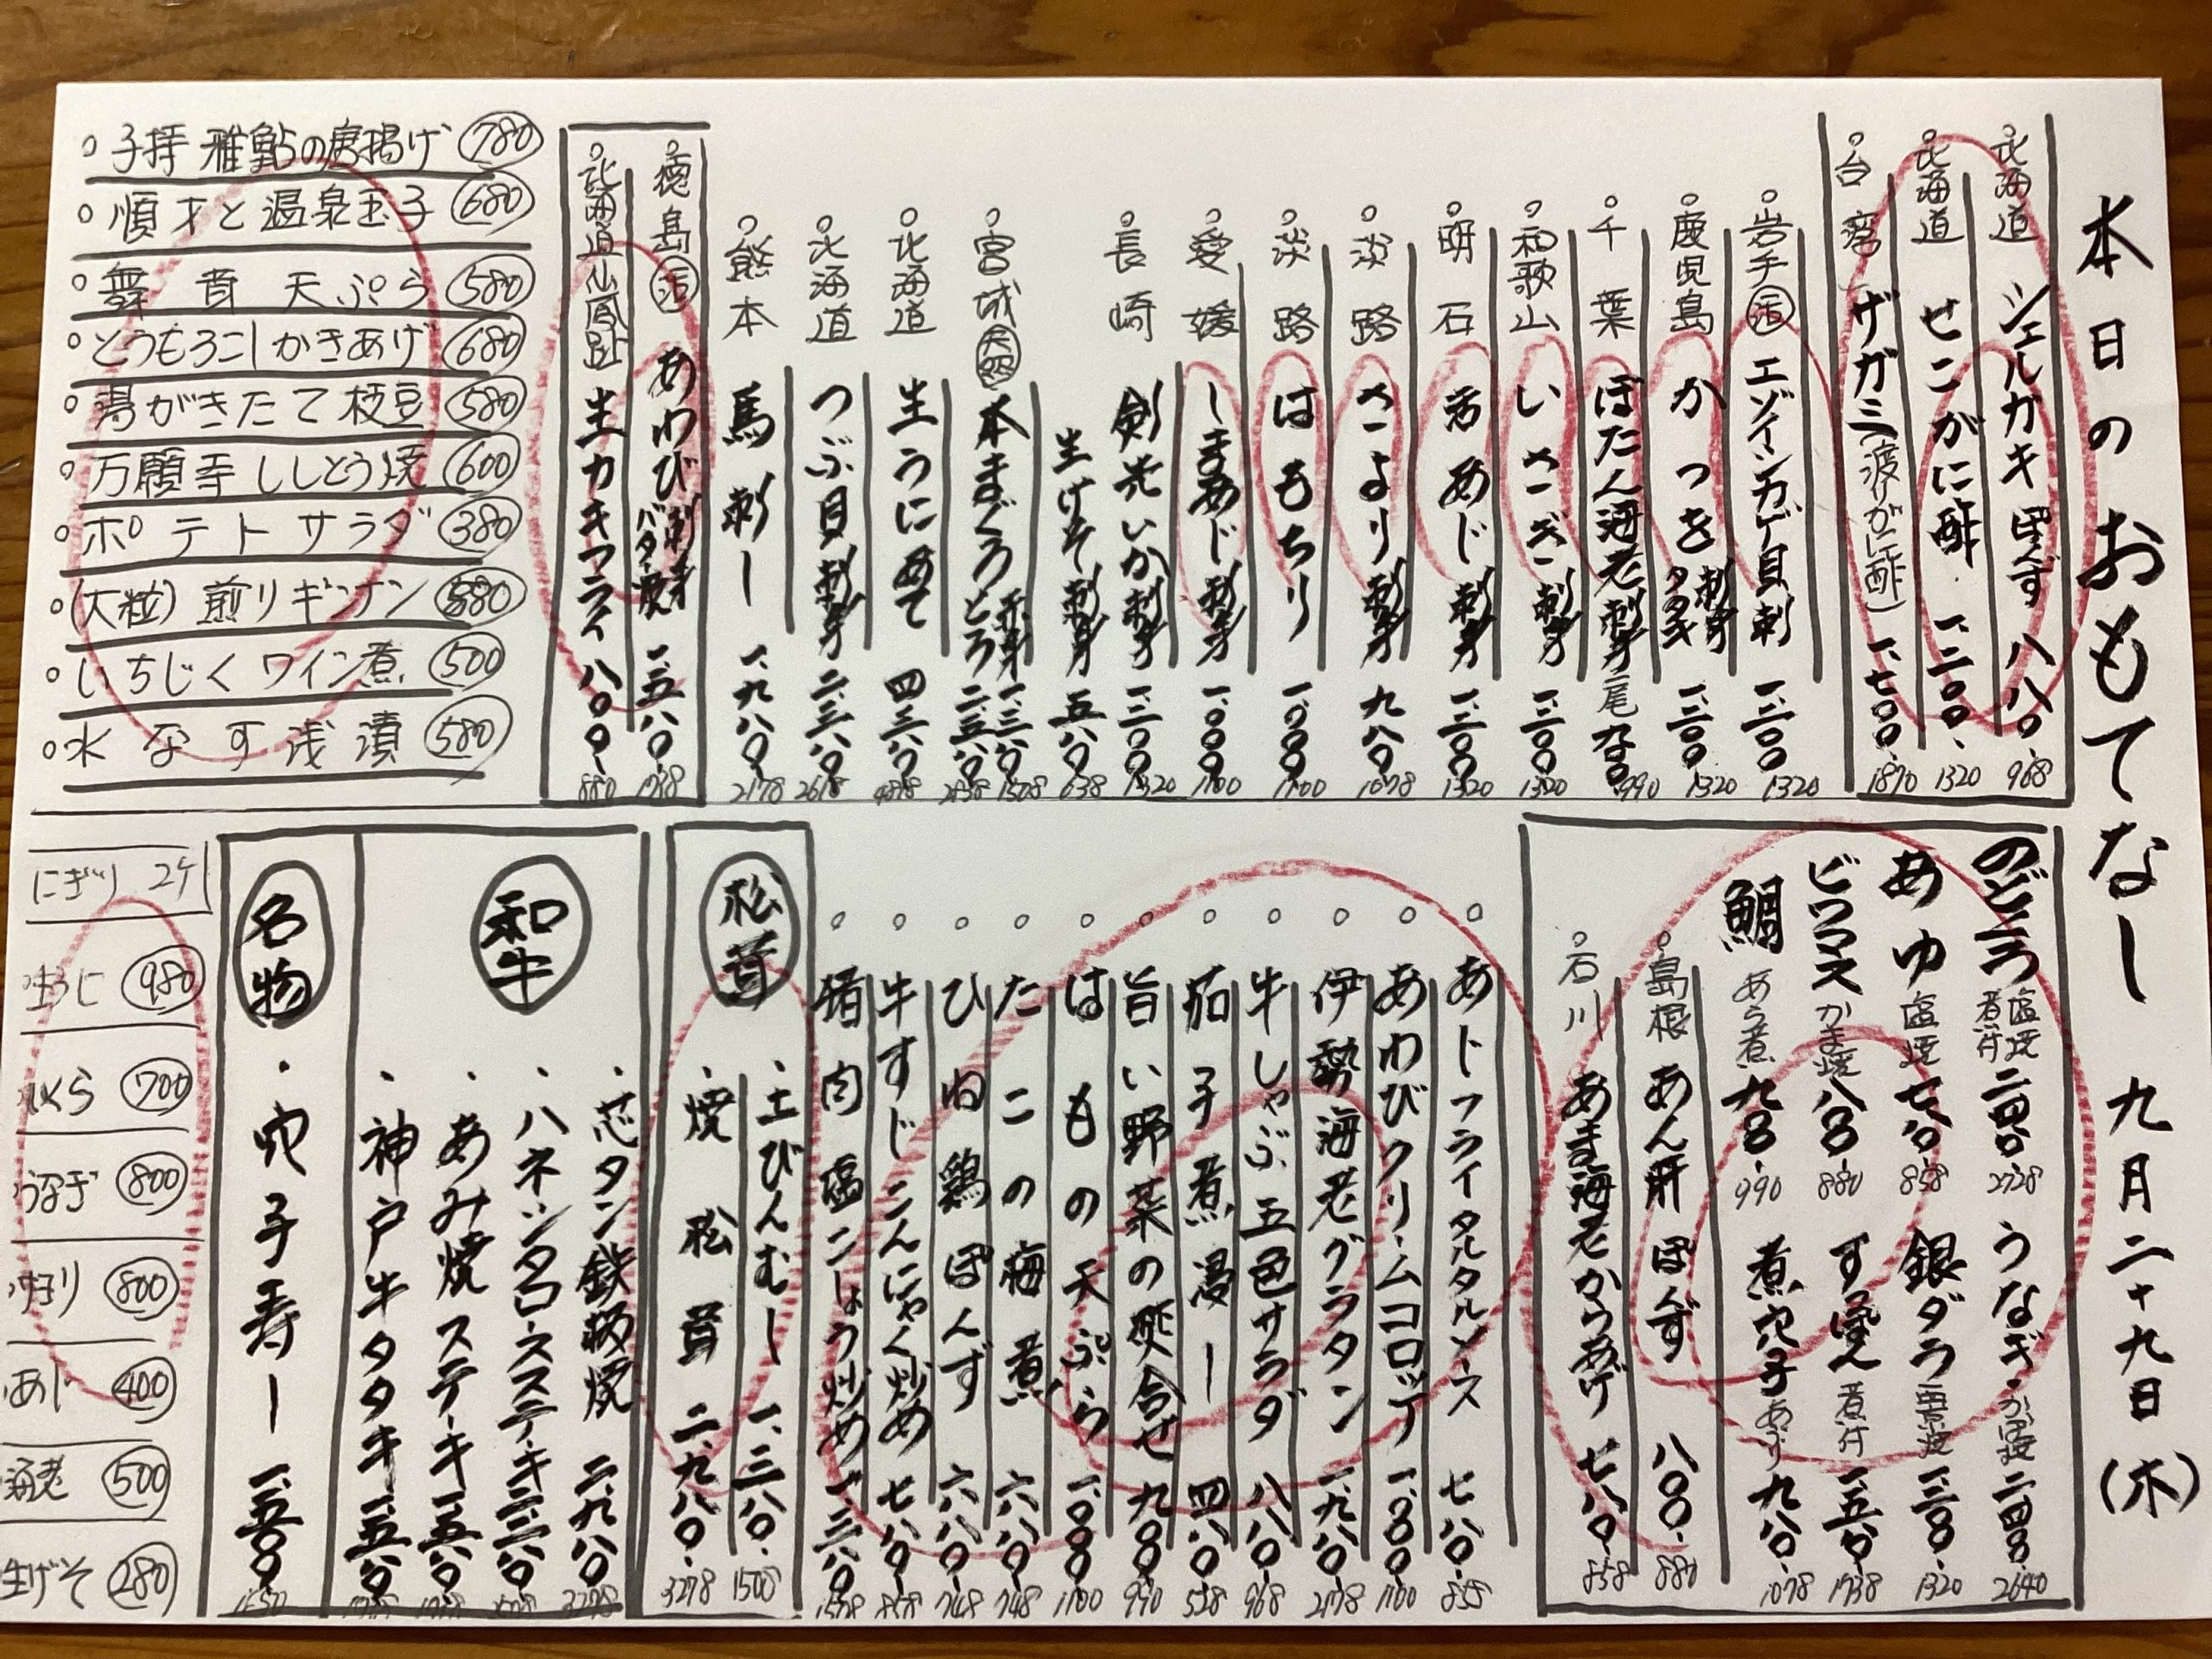 本日のおもてなし 九月二十九日(木)
北海道 シェルガキ ぽんず 八八〇. 968
北海道 せこがに酢. 一、二〇〇. 1320
台湾 ザガミ(渡りがに酢) 一、七〇〇. 1870
岩手 活 エゾイシカゲ貝刺 一、二〇〇 1320
鹿児島 かつを 刺身 タタキ 一、二〇〇. 1320
千葉 ぼたん海老刺身 二尾 九〇〇 990
和歌山 いさぎ刺身 一、二〇〇 1320
明石 活あじ刺身 一、二〇〇 1320
淡路 さより刺身 九八〇 1078
淡路 はもちり 一、〇〇〇 1100
愛媛 しまあじ刺身 一、〇〇〇 1100
長崎 剣先いか刺身 一、二〇〇 1320
生げそ刺身 五八〇 638
宮城 天然 本まぐろ 赤身 一、三八〇 1508
とろ 二、五八〇
北海道 生うにあて 四、三八〇
北海道 つぶ貝刺身 二、三八〇 2618
熊本 馬刺し 一、九八〇 2178
徳島 活 あわび 刺身 バター焼 一、五八〇.
北海道 仙鳳趾 生カキフライ 八〇〇. 880
子持 稚鮎の唐揚げ 780
順才と温泉玉子 680
舞茸天ぷら 580
とうもろこしかきあげ 680
湯がきたて枝豆 580
万願寺ししとう焼 600
ポテトサラダ 380
(大粒)煎りギンナン 580
いちじくワイン煮 500
水なす浅漬 580
のどぐろ 塩焼 煮付 2728
あゆ 塩焼 七八〇. 858
ビワマス かま焼 八〇〇. 880
鯛 あら煮 九〇〇. 990
うなぎ. かば焼 二、四〇〇 2640
銀ダラ 西京焼 一、二〇〇. 1320
すっぽん 煮付 一、五八〇. 1738
煮穴子 あぶり 九八〇. 1078
島根 あん肝ぽんず 八〇〇. 880
石川 あま海老からあげ 七八〇. 858
あじフライタルタルソース 七八〇. 858
あわびクリームコロッケ 一、〇〇〇 1100
伊勢海老グラタン 一、九八〇 2178
牛しゃぶ五色サラダ 八八〇. 968
茄子煮浸し 四八〇. 528
旨い野菜の炊合せ 九〇〇. 990
はもの天ぷら 一、〇〇〇 1100
たこの梅煮 六八〇. 748
ひね鶏ぽんず 六八〇. 748
牛すじこんにゃく炒め 七八〇. 858
猪肉塩こしょう炒め 一、三八〇
松茸
・土びんむし 一、三八〇. 1508
・焼松茸 二、九八〇. 3278
和牛
・芯タン鉄板焼 二、九八〇. 3278
・ハネシタロースステーキ
・あみ焼ステーキ 一、五八〇
・神戸牛タタキ 一、五八〇
名物
・穴子寿し 一、五〇〇 1650
にぎり 2ケ
生うに 980
いくら 700
うなぎ 800
800
あじ 400
海老 500
生げそ 280